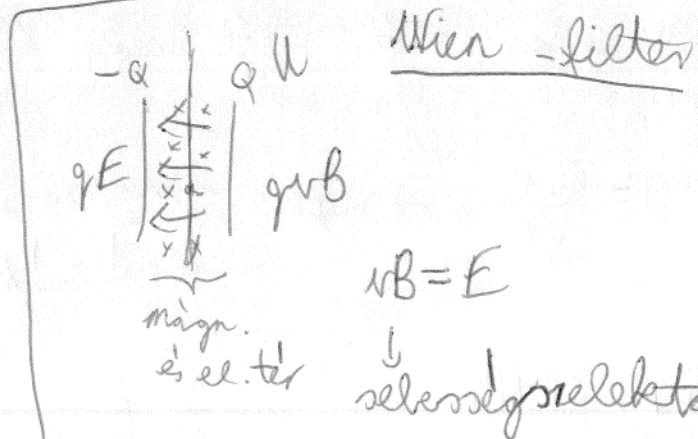 Wien-filter
-Q Q U
qE qvB
vB = E
↓
mágn.
és el. tér
sebességszelekto